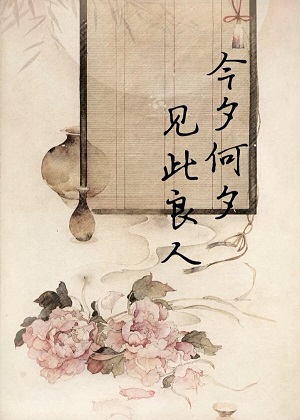 今夕何夕
见此良人